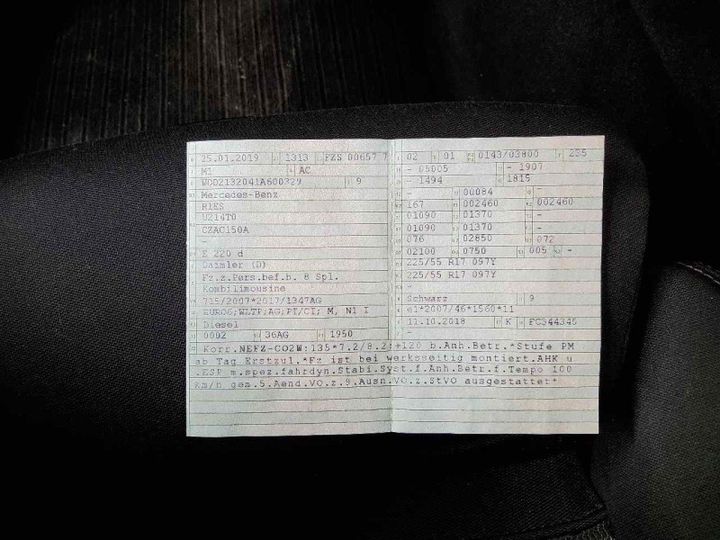 25.01.2019 1313 FZS 00657 7
M1 AC
9
Mercedes-Benz
R1ES
CZAC150A
-
E 220 d
Daimler (D)
Fz.z.Pers.bef.b. 8 Spl.
Kombilimousine
715/2007*2017/1347AG
EURO6;WLTP;AG;PT/CI; M, N1 I
Diesel
0002 36AG 1950
02 01 0143/03800 235
- 05005 - 1907
- 1494 1815
- 00084 -
167 002460 002460
01090 01370
01090 01370
076 02850 072
02100 0750 005 -
225/55 R17 097Y
225/55 R17 097Y
-
-
Schwarz 9
e1*2007/46*1560*11
11.10.2018 K FC344345
-
Korr.NEFZ-CO2W:135*7.2/8.2:+120 b.Anh.Betr.*Stufe PM
ab Tag Erstzul.*Fz ist bei werksseitig montiert.AHK u
.ESP m.spez.fahrdyn.Stabi.Syst.f.Anh.Betr.f.Tempo 100
km/h gem.5.Aend.VO.z.9.Ausn.VO.z.StVO ausgestattet*